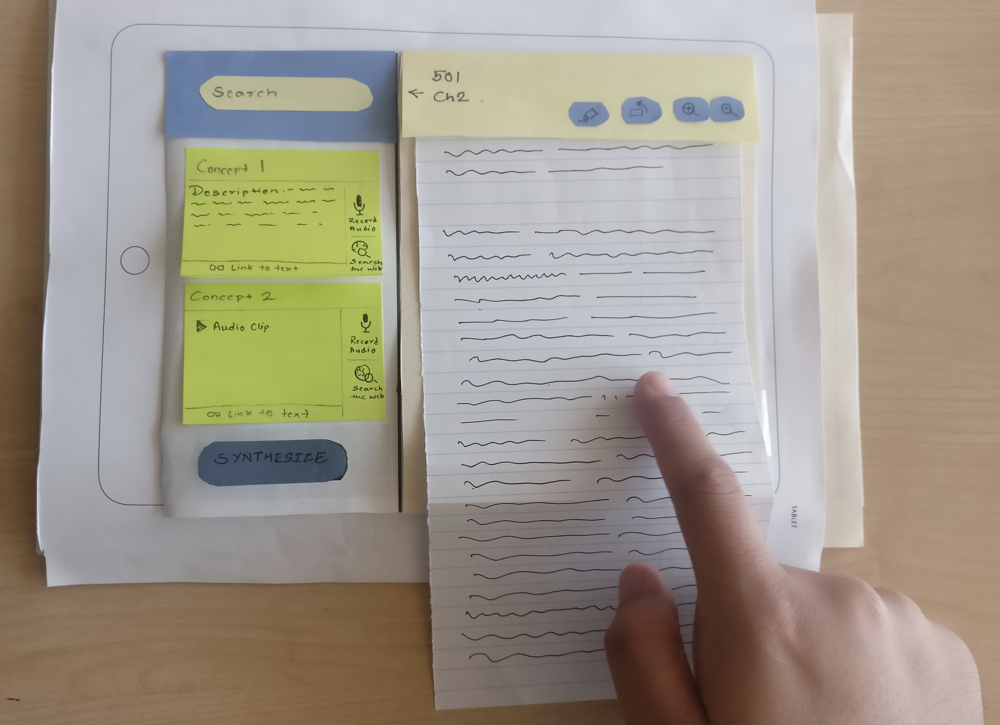 Search
Concept 1
Description
Record
Audio
Search
the web
Link to text
Concept 2
Audio Clip
Record
Audio
Search
the web
Link to text
SYNTHESIZE
501
← Ch2.
TABLET